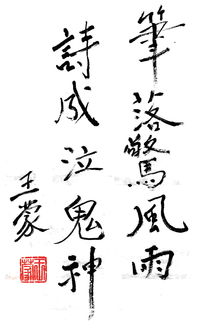 筆落驚風雨
詩成泣鬼神
王蒙